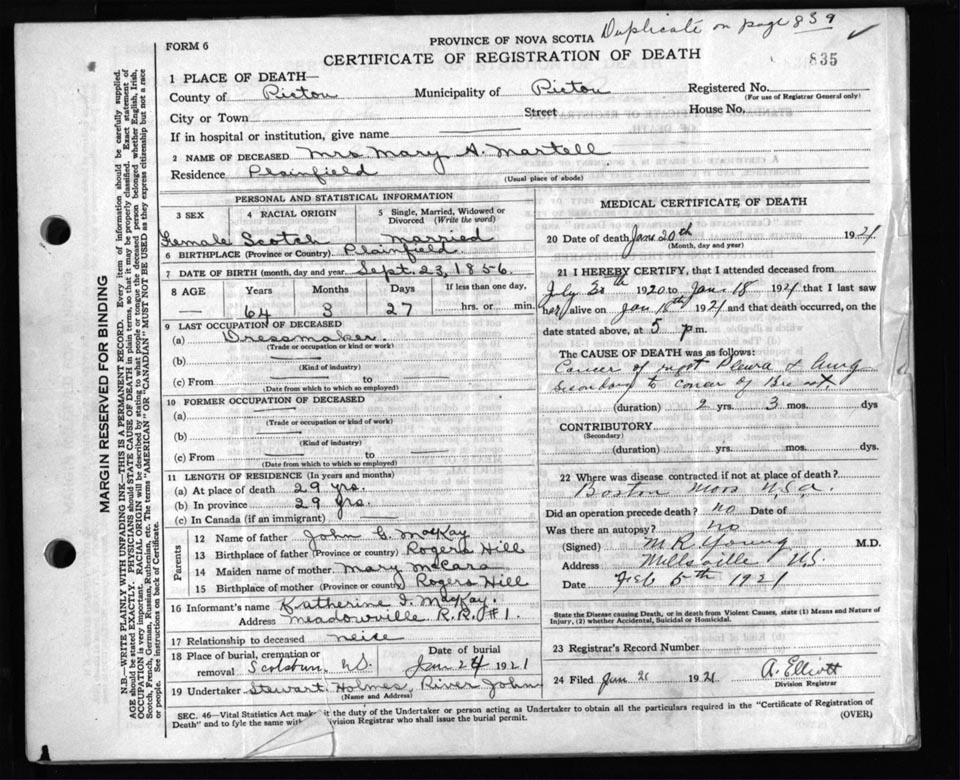 Duplicate on page 839
835
FORM 6
PROVINCE OF NOVA SCOTIA
CERTIFICATE OF REGISTRATION OF DEATH
1 PLACE OF DEATH—
County of Pictou Municipality of Pictou Registered No.
(For use of Registrar General only)
City or Town Street House No.
If in hospital or institution, give name
2 NAME OF DECEASED Mrs Mary A. Martell
Residence Plainfield
(Usual place of abode)
PERSONAL AND STATISTICAL INFORMATION
3 SEX 4 RACIAL ORIGIN 5 Single, Married, Widowed or Divorced (Write the word)
Female Scotch Married
6 BIRTHPLACE (Province or Country) Plainfield
7 DATE OF BIRTH (month, day and year) Sept. 23, 1856
8 AGE Years Months Days If less than one day,
— 64 3 27 hrs. or min.
9 LAST OCCUPATION OF DECEASED
(a) Dressmaker.
(Trade or occupation or kind or work)
(b)
(Kind of industry)
(c) From to
(Date from which to which so employed)
10 FORMER OCCUPATION OF DECEASED
(a)
(Trade or occupation or kind of work)
(b)
(Kind of industry)
(c) From to
(Date from which to which so employed)
11 LENGTH OF RESIDENCE (In years and months)
(a) At place of death 29 yrs.
(b) In province 29 yrs.
(c) In Canada (if an immigrant)
Parents
12 Name of father John G. MacKay
13 Birthplace of father (Province or country) Rogers Hill
14 Maiden name of mother Mary McCara
15 Birthplace of mother (Province or country) Rogers Hill
16 Informant's name Katherine I. MacKay.
Address Meadowville R.R. #1.
17 Relationship to deceased neise
18 Place of burial, cremation or removal Scotsburn, N.S. Date of burial Jan 24 1921
19 Undertaker Stewart Holmes, River John
(Name and Address)
MEDICAL CERTIFICATE OF DEATH
20 Date of death Jan 20th 1921
(Month, day and year)
21 I HEREBY CERTIFY, that I attended deceased from
July 30th 1920 to Jan 18 1921 that I last saw
her alive on Jan 18th 1921 and that death occurred, on the
date stated above, at 5 p.m.
The CAUSE OF DEATH was as follows:
Cancer of Pleura & Lung
Secondary to cancer of Breast
(duration) 2 yrs. 3 mos. dys
CONTRIBUTORY
(Secondary)
(duration) yrs. mos. dys.
22 Where was disease contracted if not at place of death?
Boston Mass U.S.A.
Did an operation precede death? no Date of
Was there an autopsy? no
(Signed) M R Young M.D.
Address Millsville N.S.
Date Feb 5th 1921
State the Disease causing Death, or in death from Violent Causes, state (1) Means and Nature of
Injury, (2) whether Accidental, Suicidal or Homicidal.
23 Registrar's Record Number
24 Filed 1921 A. Elliott
Division Registrar
SEC. 46—Vital Statistics Act make it the duty of the Undertaker or person acting as Undertaker to obtain all the particulars required in the "Certificate of Registration of
Death" and to fyle the same with Division Registrar who shall issue the burial permit. (OVER)
MARGIN RESERVED FOR BINDING
N.B.—WRITE PLAINLY WITH UNFADING INK—THIS IS A PERMANENT RECORD. Every item of information should be carefully supplied.
AGE should be stated EXACTLY. PHYSICIANS should STATE CAUSE OF DEATH in plain terms, so that it may be properly classified. Exact statement of
OCCUPATION is very important. RACIAL ORIGIN will be described by stating to what people or tongue the deceased person belonged whether English, Irish,
Scotch, French, German, Russian, Ruthenian, etc. The terms "AMERICAN" OR "CANADIAN" MUST NOT BE USED as they express citizenship but not a race
or people. See instructions on back of Certificate.